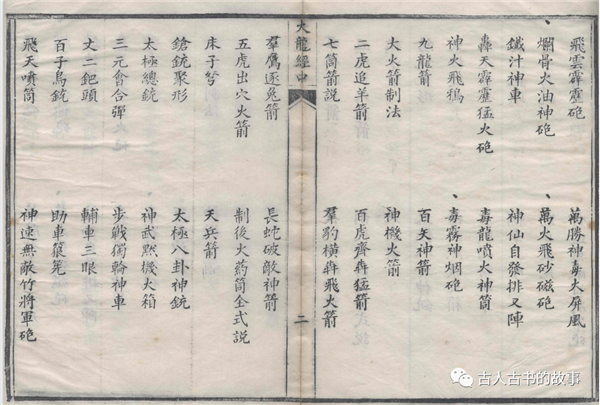 飛雲霹靂砲　萬勝神毒火屏風
爛骨火油神砲　萬火飛砂磁砲
鐵汁神車　神仙自發排叉陣
轟天霹靂猛火砲　毒龍噴火神筒
神火飛鴉　毒霧神烟砲
九龍箭　百矢神箭
大火箭制法　神機火箭
二虎追羊箭　百虎齊犇猛箭
七筒箭説　羣豹橫犇飛火箭
火龍經中　二
羣鷹逐兔箭　長蛇破敵神箭
五虎出穴火箭　制後火药筒全式説
床子弩　天兵箭
鎗銃聚形　太極八卦神銃
太極總銃　神武默機火箱
三元會合彈　步戰獨輪神車
丈二鈀頭　輔車三眼
百子鳥銃　助車筤筅
飛天噴筒　神速無敵竹將軍砲
古人古书的故事